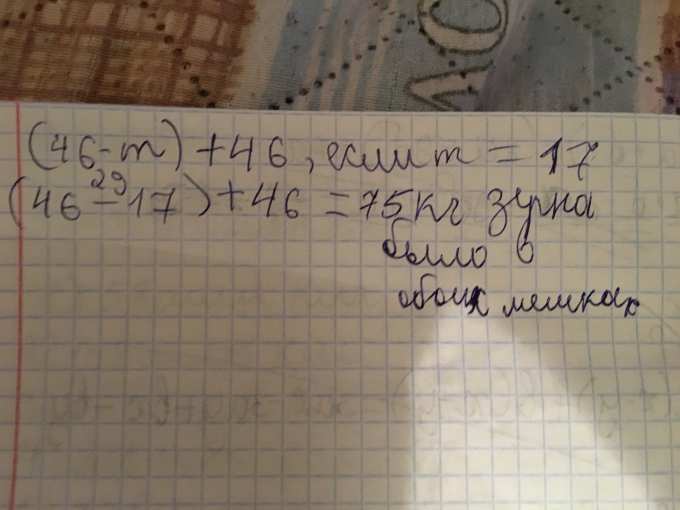 (46-m)+46, если m = 17
29
(46-17)+46 = 75 кг зерна
было в
обоих мешках